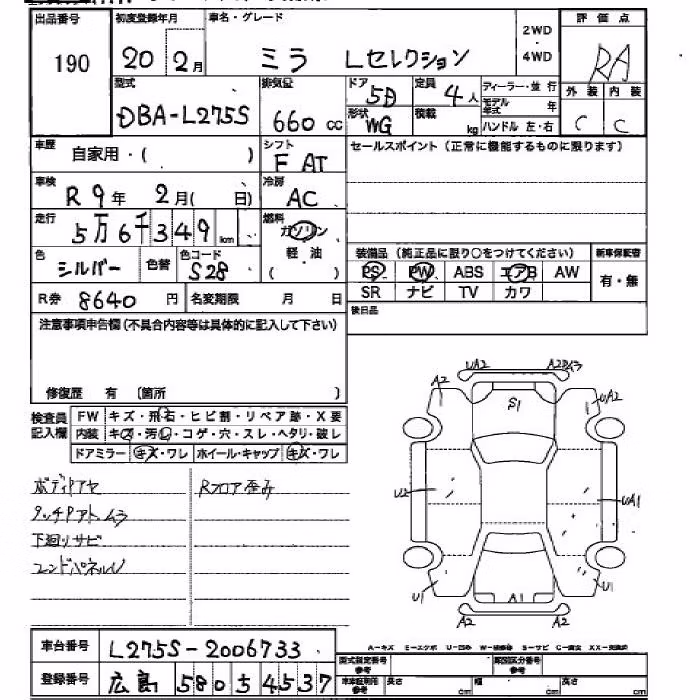 出品番号 初度登録年月 車名・グレード 2WD ・ 4WD 評価点
190 20 2月 ミラ Lセレクション RA
型式 排気量 ドア 定員 ディーラー・並行 外装 内装
DBA-L275S 660 cc 5D 4人 モデル年式 年 C C
形状 WG 積載 kg ハンドル 左・右
車歴 自家用・( ) シフト F AT セールスポイント(正常に機能するものに限ります)
車検 R9年 2月( 日) 冷房 AC
走行 5万6千349km 燃料 ガソリン・軽油 ( )
色 シルバー 色替 色コード S28 装備品(純正品に限り○をつけてください) 新車保証書
PS PW ABS エアB AW 有・無
SR ナビ TV カワ
R券 8640円 名変期限 月 日 後日品
注意事項申告欄(不具合内容等は具体的に記入して下さい)
修復歴 有 〔箇所 〕
検査員記入欄 FW キズ・飛石・ヒビ割・リペア跡・X要
内装 キズ・汚れ・コゲ・穴・スレ・ヘタリ・破レ
ドアミラー キズ・ワレ ホイール・キャップ キズ・ワレ
ボディアセ Rフロア歪み
タッチアトムラ
下廻りサビ
エンドパネルU
UA2 A2
A2 S1 UA2
U2 UA1
U1 A1 U1
A2 A2
A-キズ E-エクボ U-凹み W-補修巻 S-サビ C-腐食 XX-交換済
車台番号 L275S-2006733 型式指定番号 参考 類別区分番号 参考
登録番号 広島 580 5 4537 車車証明用 参考 長さ cm 幅 cm 高さ cm